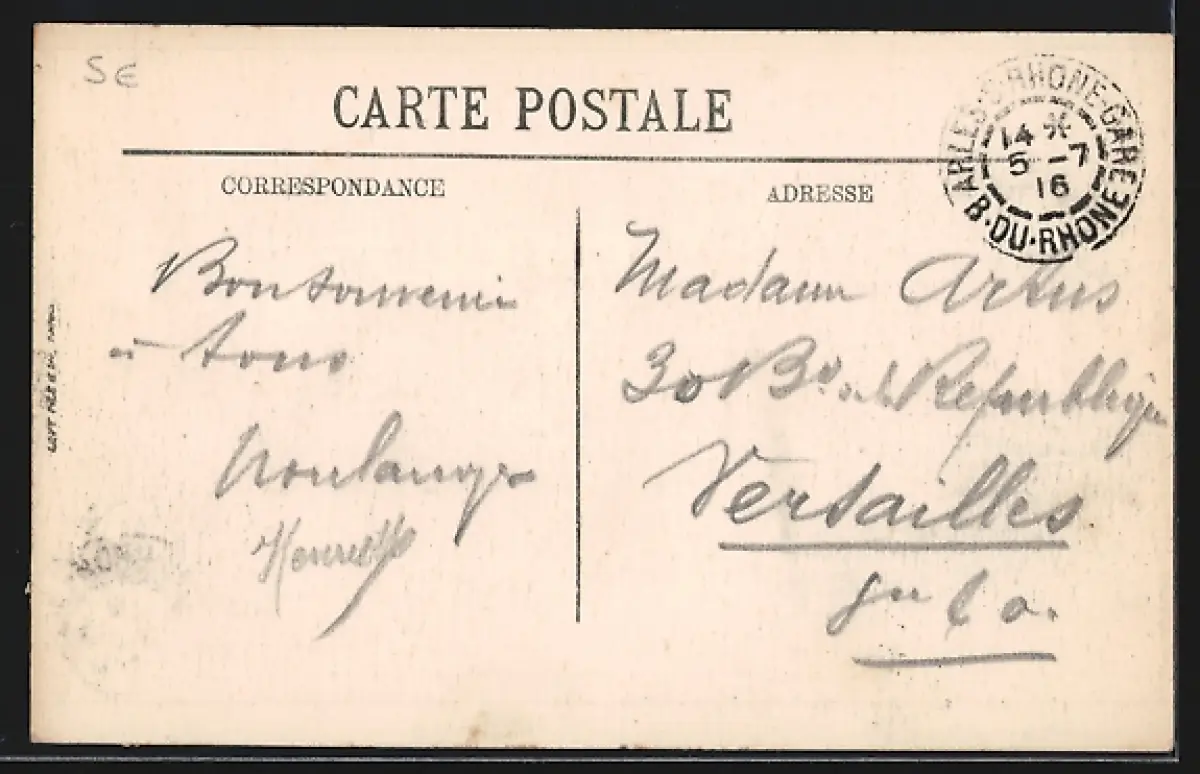 5 €
CARTE POSTALE
CORRESPONDANCE
ADRESSE
ARLES-S-RHONE-GARE
14 *
5 -7
16
B.-DU-RHONE
Bon souvenir
à tous
Henriette
Madame Artus
30 Bd de la République
Versailles